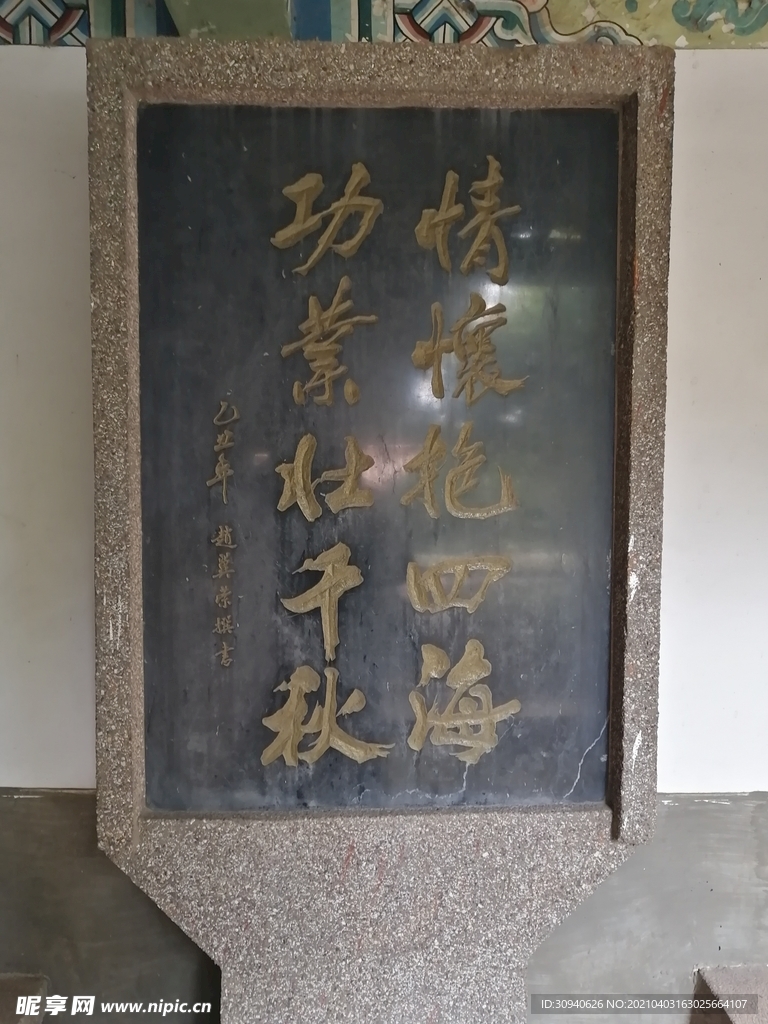 情懷抱四海
功業壯千秋
乙丑年 趙冀榮撰书
昵享网 www.nipic.cn
ID:30940626 NO:20210403163025664107